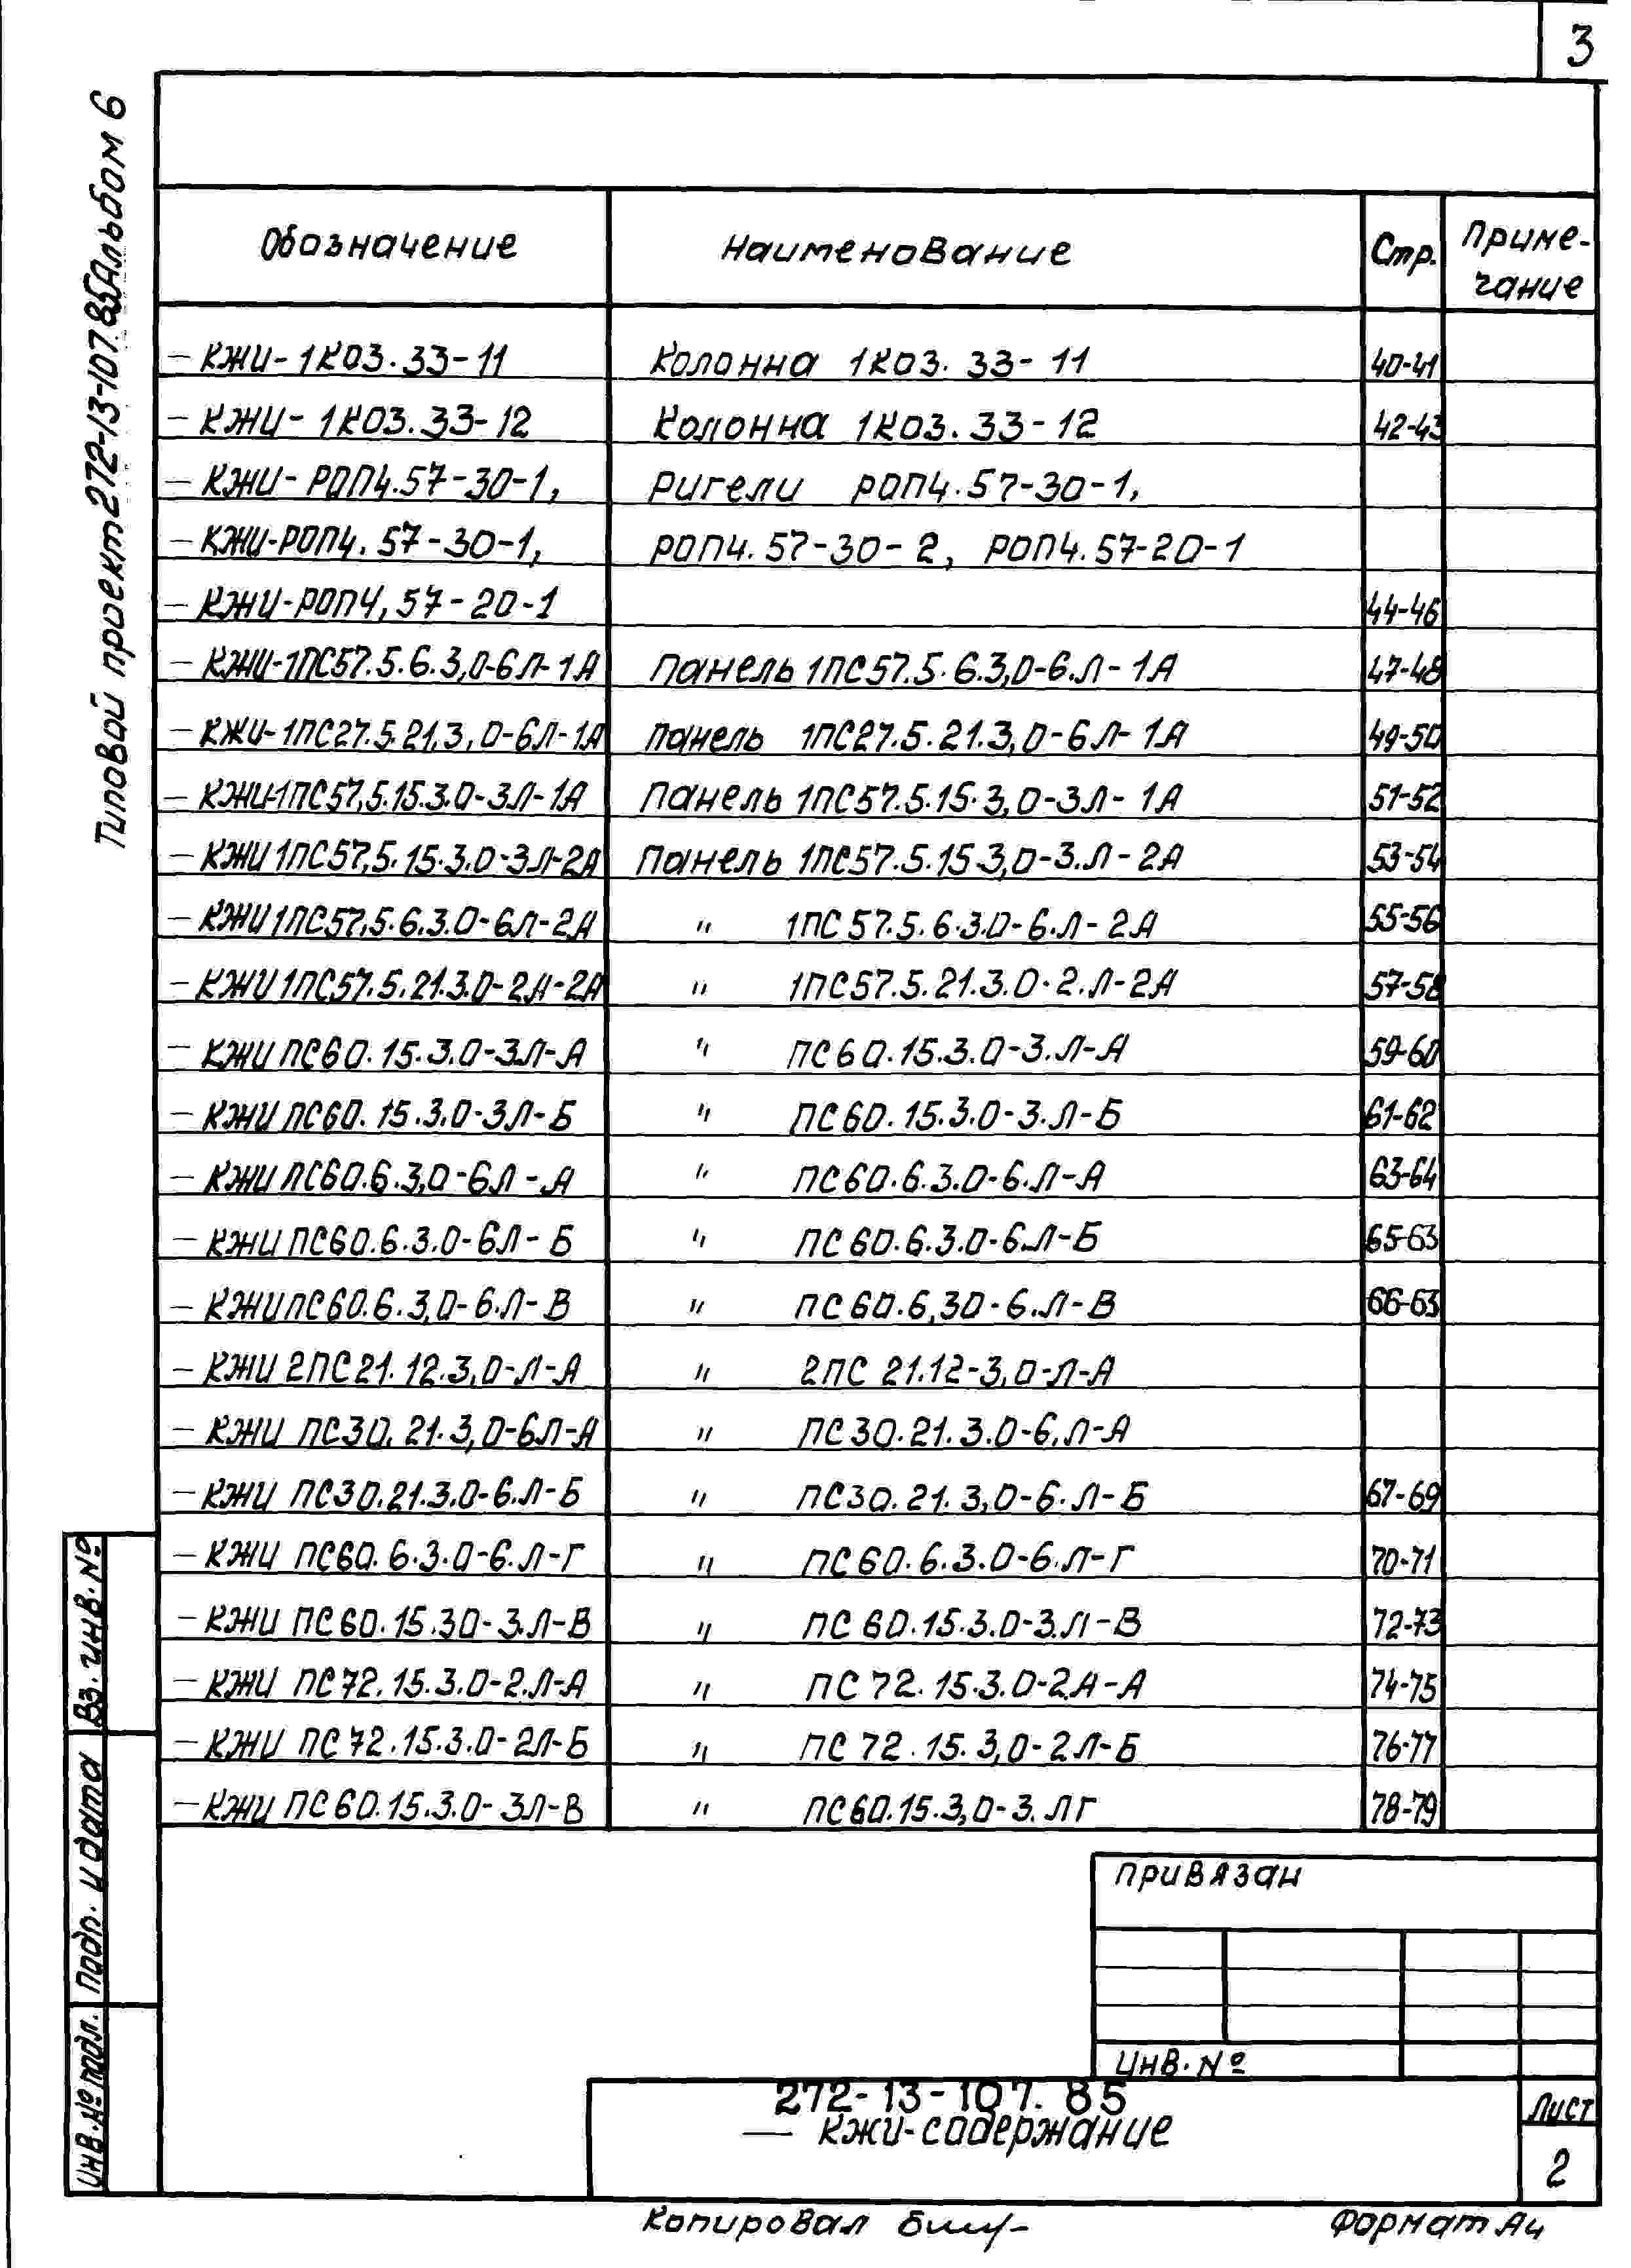 3
Типовой проект 272-13-107.85 Альбом 6
Обозначение Наименование Стр. Приме-
чание
- КЖИ-1К03.33-11 Колонна 1К03.33-11 40-41
- КЖИ-1К03.33-12 Колонна 1К03.33-12 42-43
- КЖИ-РОП4.57-30-1, Ригели РОП4.57-30-1,
- КЖИ-РОП4.57-30-1, РОП4.57-30-2, РОП4.57-20-1
- КЖИ-РОП4,57-20-1 44-46
- КЖИ-1ПС57.5.6.3,0-6Л-1А Панель 1ПС57.5.6.3,0-6.Л-1А 47-48
- КЖИ-1ПС27.5.21.3,0-6Л-1А Панель 1ПС27.5.21.3,0-6Л-1А 49-50
- КЖИ-1ПС57,5.15.3.0-3Л-1А Панель 1ПС57.5.15.3,0-3Л-1А 51-52
- КЖИ 1ПС57,5.15.3.0-3Л-2А Панель 1ПС57.5.15 3,0-3.Л-2А 53-54
- КЖИ 1ПС57,5.6.3.0-6Л-2А " 1ПС57.5.6.3.0-6.Л-2А 55-56
- КЖИ 1ПС57.5.21.3.0-2Л-2А " 1ПС57.5.21.3.0-2.Л-2А 57-58
- КЖИ ПС60.15.3.0-3Л-А " ПС60.15.3.0-3.Л-А 59-60
- КЖИ ПС60.15.3.0-3Л-Б " ПС60.15.3.0-3.Л-Б 61-62
- КЖИ ПС60.6.3,0-6Л-А " ПС60.6.3.0-6.Л-А 63-64
- КЖИ ПС60.6.3.0-6Л-Б " ПС60.6.3.0-6.Л-Б 65-63
- КЖИ ПС60.6.3,0-6.Л-В " ПС60.6,30-6.Л-В 66-63
- КЖИ 2ПС21.12.3,0-Л-А " 2ПС 21.12-3,0-Л-А
- КЖИ ПС30.21.3,0-6Л-А " ПС30.21.3.0-6.Л-А
- КЖИ ПС30.21.3.0-6.Л-Б " ПС30.21.3,0-6.Л-Б 67-69
- КЖИ ПС60.6.3.0-6.Л-Г " ПС60.6.3.0-6.Л-Г 70-71
- КЖИ ПС60.15.30-3.Л-В " ПС 60.15.3.0-3.Л-В 72-73
- КЖИ ПС72.15.3.0-2.Л-А " ПС 72.15.3.0-2Л-А 74-75
- КЖИ ПС72.15.3.0-2Л-Б " ПС 72.15.3,0-2Л-Б 76-77
- КЖИ ПС60.15.3.0-3Л-В " ПС60.15.3,0-3.ЛГ 78-79
Вз. инв. №
Подп. и дата
Инв. № подл.
Привязан
Инв. №
272-13-107.85
— КЖИ-содержание
Лист
2
Копировал
Формат А4